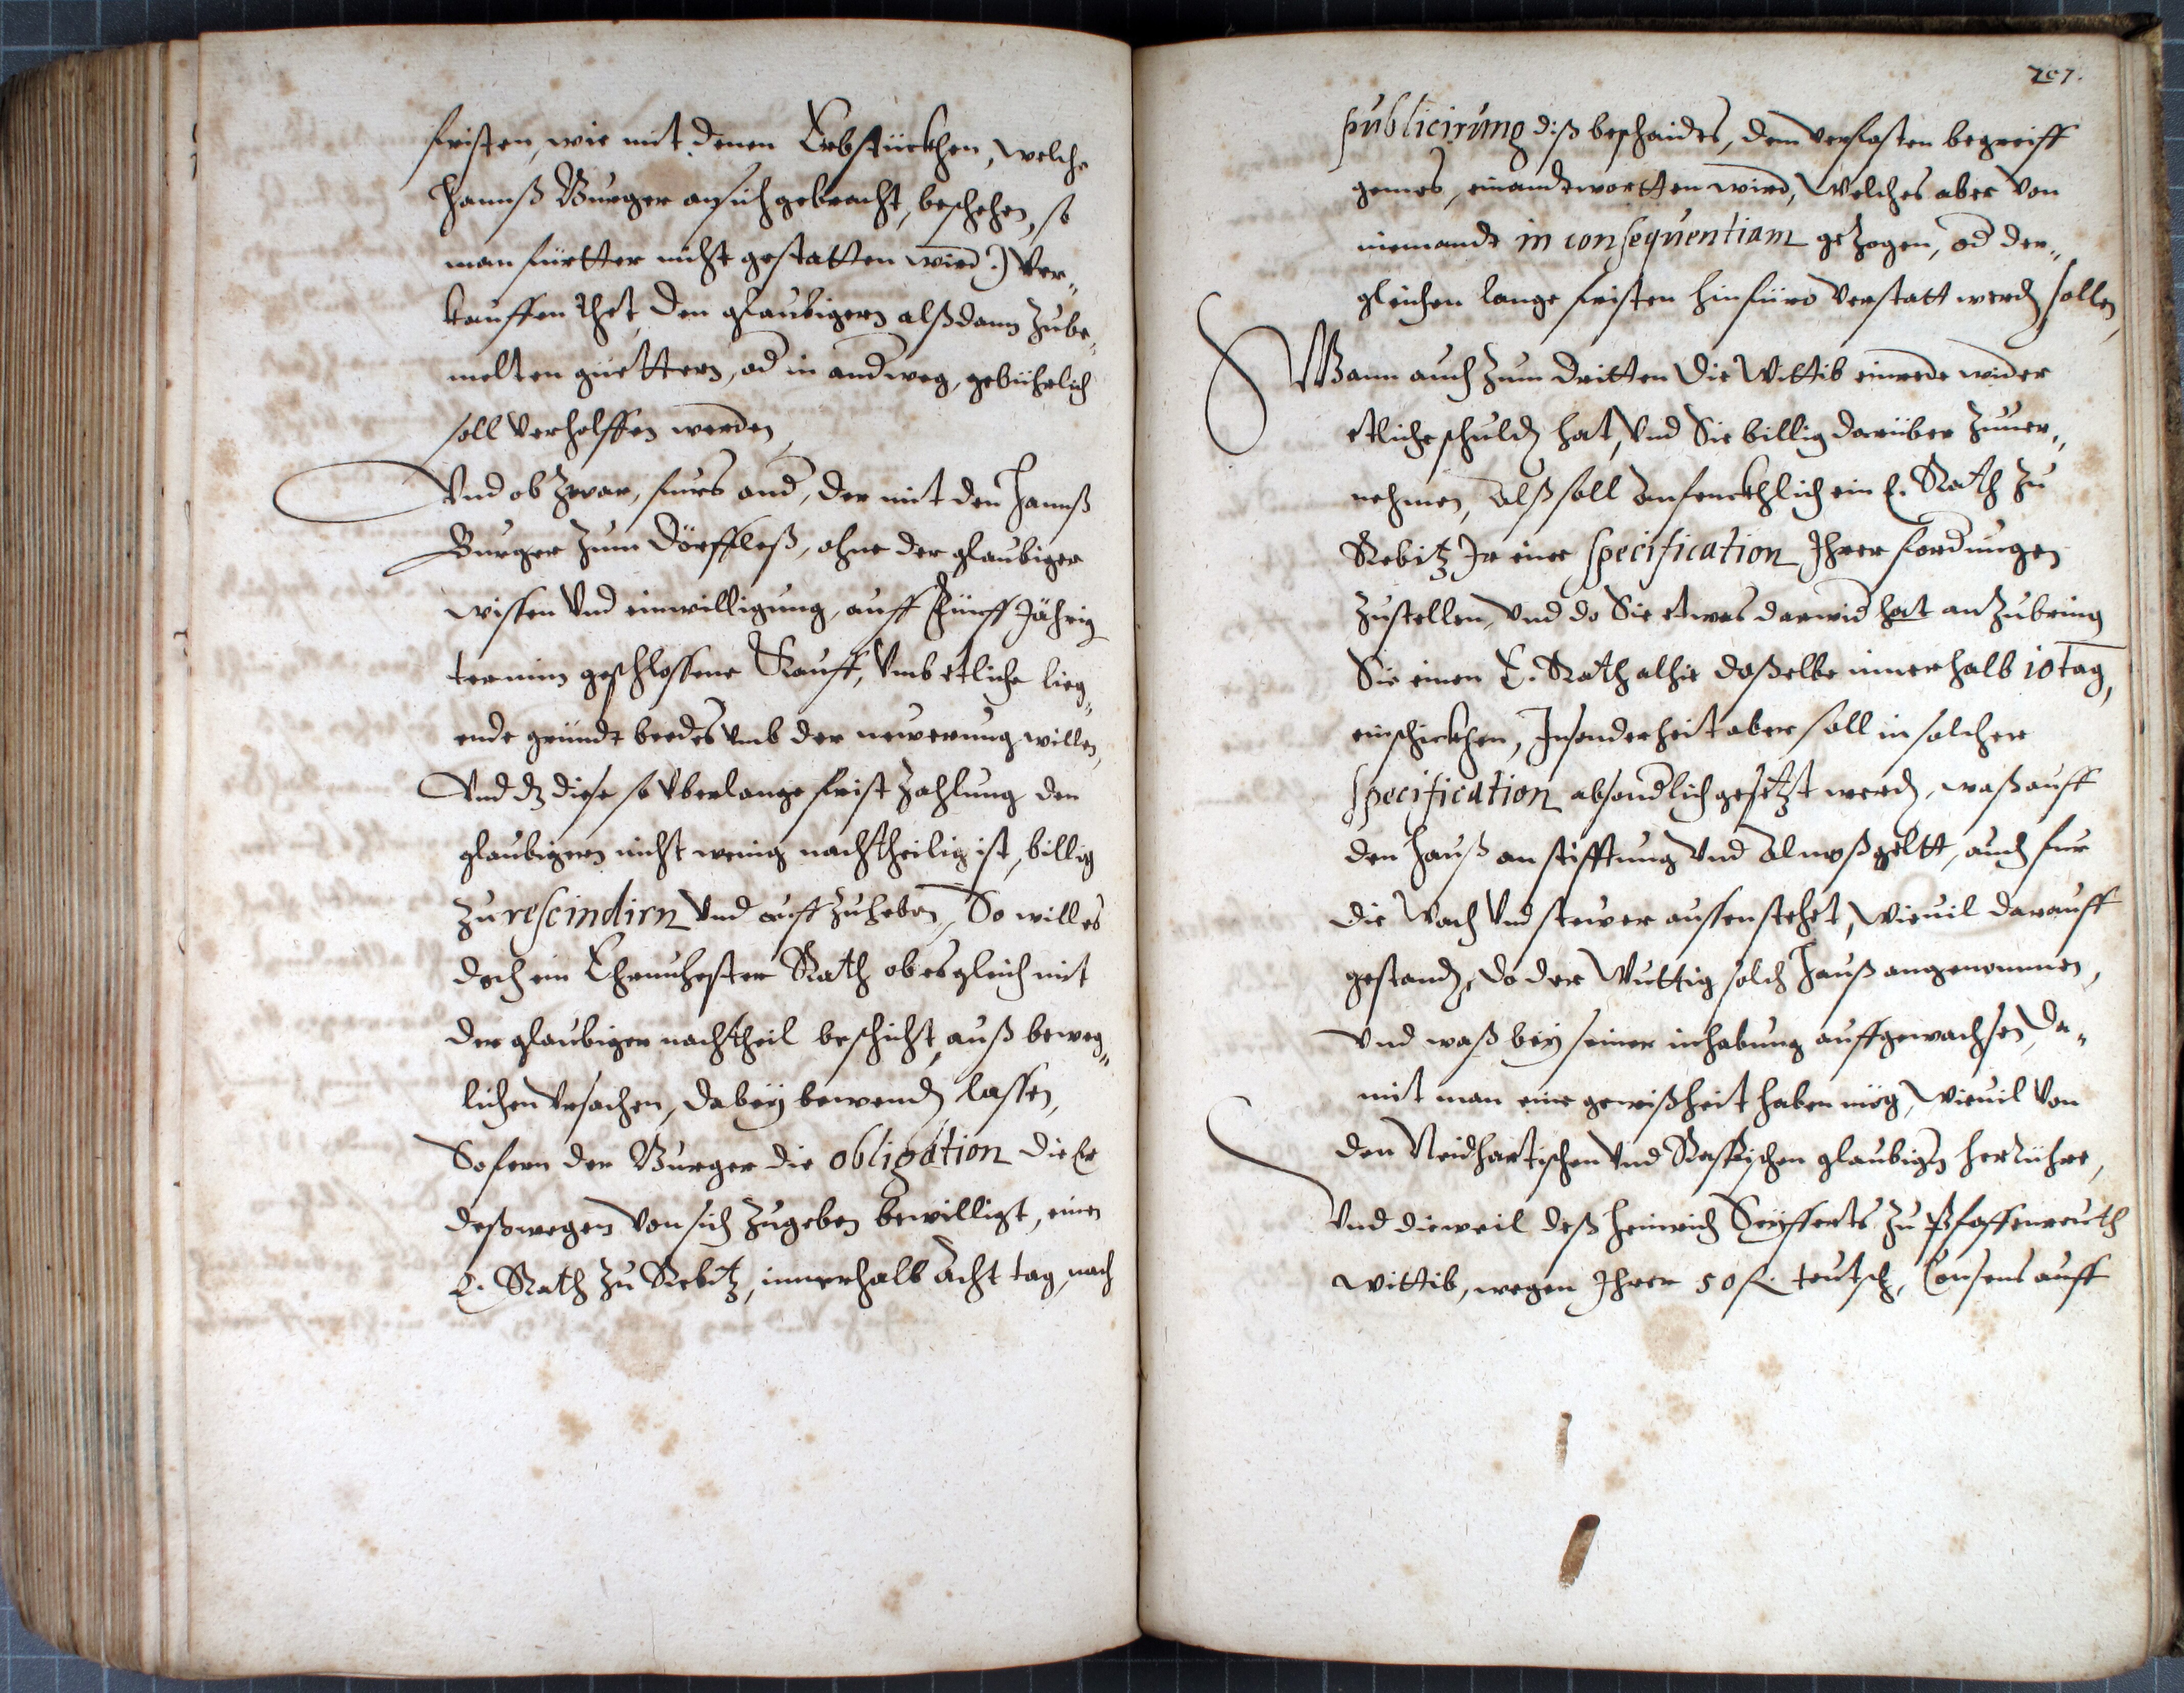 fristen, wie mit denen Erbstückhen, welche
Hannß Burger an sich gebracht, beschehen, so
man fürtter nicht gestatten wird :) ver„
kauffen thet, den glaubigern alßdann zu be„
melten güettern, od in and weg, gebührlich
soll verholffen werden,
Vnd ob zwar, fürs and, der mit den Hannß
Burger zum Dörffleß, ohne der glaubiger
wissen vnd einwilligung, auff Fünff Jährig
termin geschlossene Kauff, vmb etliche lieg„
ende gründt beedes vmb der newerung willen,
Vnd dz diese so vberlange frist zahlung den
glaubigern nicht wenig nachtheilig ist, billig
zu rescindirn vnd auff zuheben, So will es
doch ein Ehrnuhester Rath ob es gleich mit
der glaubiger nachtheil beschicht, auß beweg„
lichen vrsachen, dabey bewend lassen,
Sofern der Burger die obligation die Er
deßwegen von sich zugeben bewilligt, einen
E. Rath zu Rebitz, innerhalb acht tag, nach
201.
publicirung diß beschaides, dem verfasten begreiff
gemes, einandtwortten wird, welches aber von
niemandt in consequentiam gezogen, od der„
gleichen lange fristen hinfüro verstatt werd sollen,
Wann auch zum dritten die Wittib einrede wider
etliche schuld hat, vnd Sie billig darüber zuuer„
nehmen, Alß soll anfencklich ein E. Rath zu
Rebitz Ir eine specification Ihrer fordungen
zustellen, vnd do Sie etwas darwid hat anzubring
Sie einen E. Rath alhie daßelbe innerhalb 10 tag,
einschickhen, Insonderheit aber soll in solcher
specification absondlich gesetzt werd, waß auff
den Hauß an stifftung vnd Almoßgeltt, auch für
die Wach vnd stewer aussenstehet, wieuil darauff
gestand, do der Wuttig solch Hauß angenommen,
vnd waß bey seiner inhabung auffgewachsen, da„
mit man eine gewißheit haben mög, wieuil von
den Neidhartischen vnd glaubign herrühre,
Vnd dieweil deß Heinrich Seyfferts zu Pfaffenreuth
wittib, wegen Ihrer 50 fl. teutsch, Consens auff